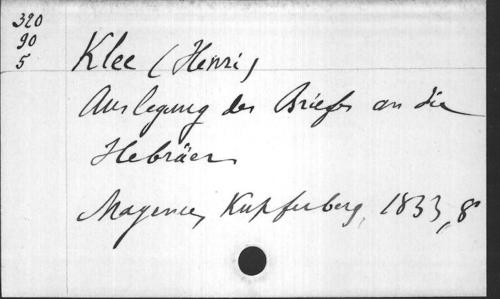 320
90
5
Klee (Henri)
Auslegung des Briefes an die
Hebräer
Mayence, Kupferberg, 1833, 8°